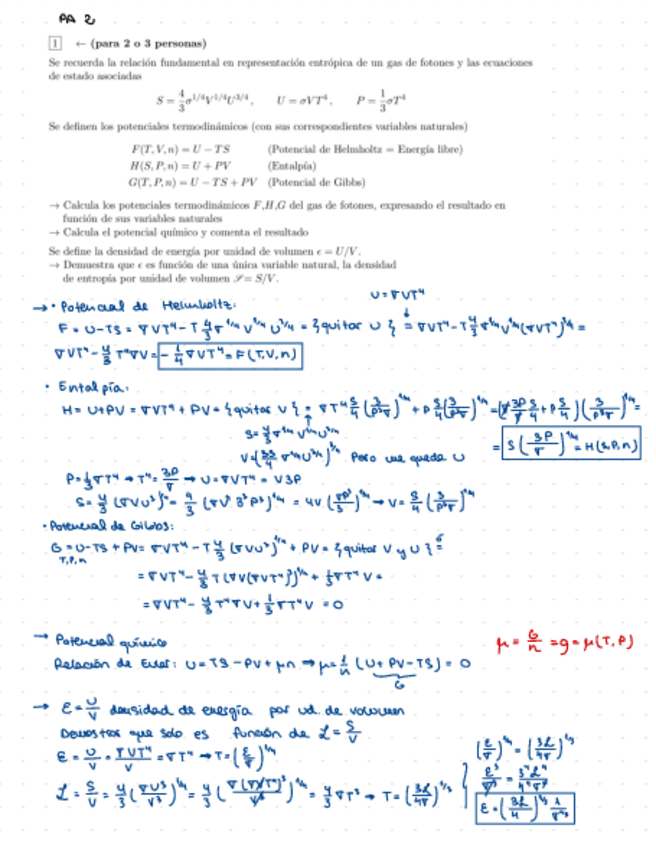 PA 2
1 ← (para 2 o 3 personas)
Se recuerda la relación fundamental en representación entrópica de un gas de fotones y las ecuaciones
de estado asociadas
S = 4/3 σ^{1/4} V^{1/4} U^{3/4}, U = σVT⁴, P = 1/3 σT⁴
Se definen los potenciales termodinámicos (con sus correspondientes variables naturales)
F(T, V, n) = U − TS (Potencial de Helmholtz = Energía libre)
H(S, P, n) = U + PV (Entalpía)
G(T, P, n) = U − TS + PV (Potencial de Gibbs)
→ Calcula los potenciales termodinámicos F,H,G del gas de fotones, expresando el resultado en
función de sus variables naturales
→ Calcula el potencial químico y comenta el resultado
Se define la densidad de energía por unidad de volumen ϵ = U/V.
→ Demuestra que ϵ es función de una única variable natural, la densidad
de entropía por unidad de volumen 𝒮 = S/V.
U = σVT⁴
→ • Potencial de Helmholtz:
F = U-TS = σVT⁴ - T 4/3 σ^{1/4} V^{1/4} U^{3/4} = {quitar U} = σVT⁴ - T 4/3 σ^{1/4} V^{1/4} (σVT⁴)^{3/4} =
σVT⁴ - 4/3 T⁴σV = - 1/3 σVT⁴ = F(T,V,n)
• Entalpía:
H = U+PV = σVT⁴ + PV = {quitar V} = σT⁴ S/4 (3/P³σ)^{1/4} + P S/4 (3/P³σ)^{1/4} =
S = 4/3 σ^{1/4} V^{1/4} U^{3/4}
Pero me queda U
= S (3P/σ)^{1/4} = H(S,P,n)
P = 1/3 σT⁴ → T⁴ = 3P/σ → U = σVT⁴ = V3P
S = 4/3 (σVU³)^{1/4} = 4/3 (σV⁴ 3³P³)^{1/4} = 4V (σP³/3)^{1/4} → V = S/4 (3/P³σ)^{1/4}
• Potencial de Gibbs:
G = U-TS + PV = σVT⁴ - T 4/3 (σVU³)^{1/4} + PV = {quitar V y U} =
T,P,n
= σVT⁴ - 4/3 T (σV(σVT⁴)³)^{1/4} + 1/3 σT⁴ V =
= σVT⁴ - 4/3 T⁴σV + 1/3 σT⁴V = 0
→ Potencial químico
μ = G/n = g = μ(T,P)
Relación de Euler: U = TS - PV + μn ⇒ μ = 1/n (U + PV - TS) = 0
G
→ ε = U/V densidad de energía por ud. de volumen
Demostrar que solo es función de 𝒮 = S/V
ε = U/V = σVT⁴/V = σT⁴ → T = (ε/σ)^{1/4}
𝒮 = S/V = 4/3 (σU³/V³)^{1/4} = 4/3 (σ(σVT⁴)³/V³)^{1/4} = 4/3 σT³ → T = (3𝒮/4σ)^{1/3}
(ε/σ)^{1/4} = (3𝒮/4σ)^{1/3}
ε³/σ³ = 3⁴𝒮⁴/4⁴σ⁴
ε = (3𝒮/4)^{4/3} 1/σ^{1/3}